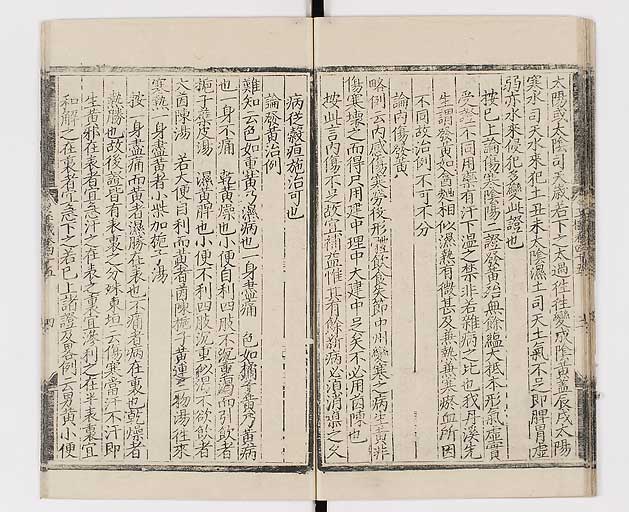 太陽或太陰司天歳若下之太過往往變成陰黄蓋辰戌太陽
寒水司天水來犯土丑未太陰濕土司天土氣不足即脾胃虚
弱亦水來侵犯多變此證也
按已上論傷寒陰陽二證發黄治無餘蘊大抵本形氣虚實
受焫不同用藥有汗下溫之禁非若雜病之比也我丹溪先
生謂發黄如盦麯相似濕熱有微甚及兼熱兼寒瘀血所因
不同故治例不可不分
論内傷發黄
略例云内感傷寒労後形體飲食失節中州變寒之病生黄非
傷寒壞之而得只用建中理中大建中足矣不必用茵陳也
按此言内傷不足故宜補益惟其有餘新病必須消導之久
病從虚疸施治可也
論發黄治例
難知云色如熏黄乃濕病也一身盡痛 色如橘子黄乃黄病
也一身不痛 乾黄燥也小便自利四肢不沉重渴而引飲者
梔子蘗皮湯 濕黄脾也小便不利四肢沉重似渴不欲飲者
大茵陳湯 若大便自利而黄者茵陳梔子黄連三物湯往來
寒熱一身盡黄者小柴加梔子湯
按一身盡痛而黄者濕勝在表也不痛者病在裏也乾燥者
熱勝也故後證皆有表裏之分殊東垣云傷寒當汗不汗即
生黄邪在表者宜急汗之在表之裏宜滲利之在半表裏宜
和解之在裏者宜急下之若已上諸證及略例云男黄小便